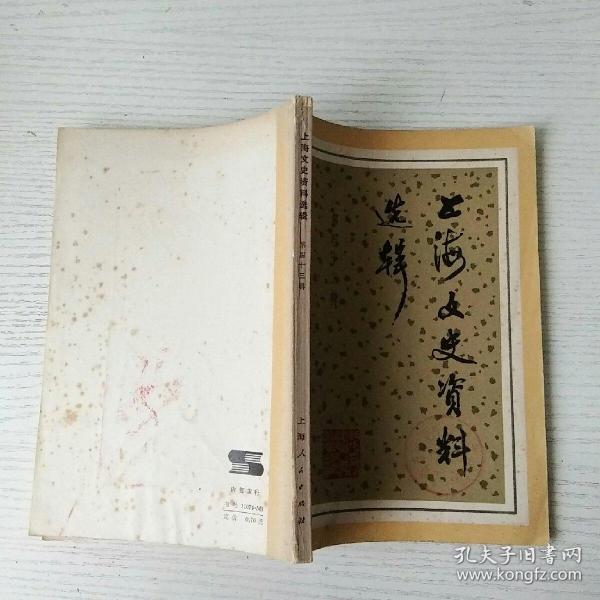 上海文史资料
选辑
上海文史资料选辑 第四十三辑
上海人民出版社
内部发行
定价 0.70元
孔夫子旧书网
www.kongfz.com